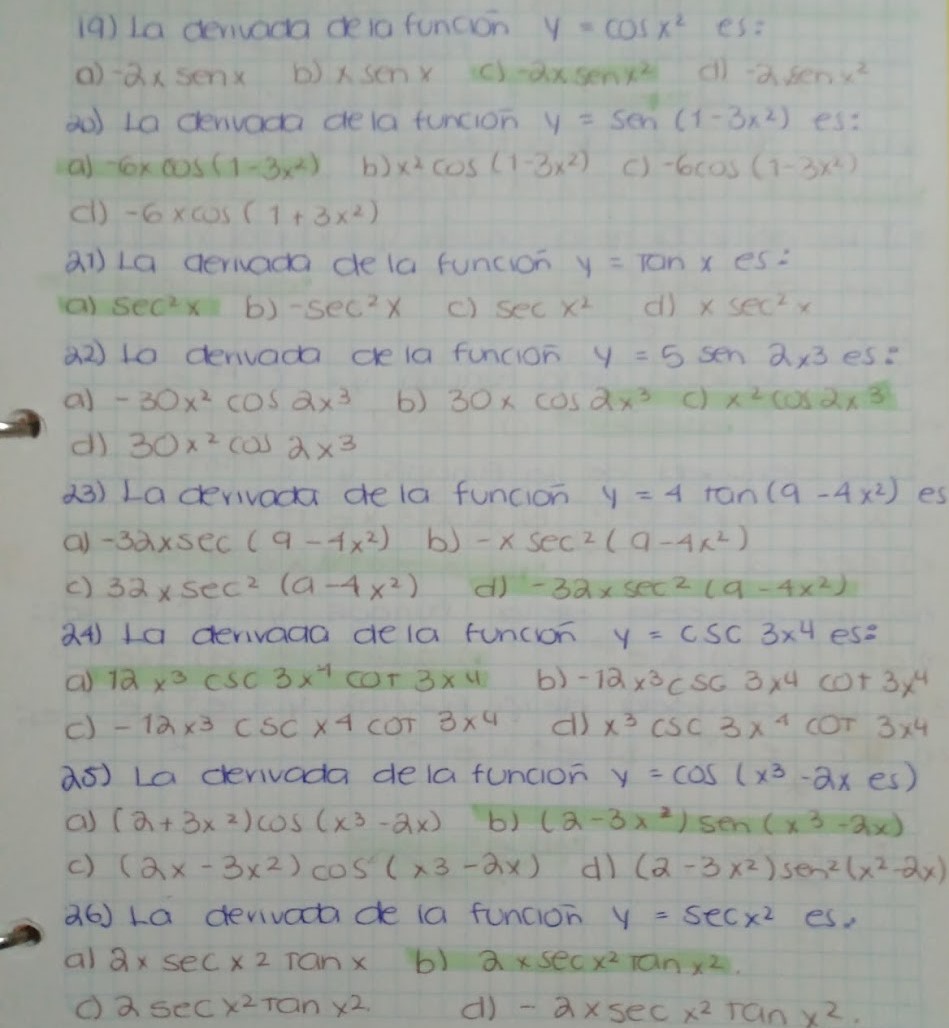 19) La derivada de la función y = cos x² es:
a) -2x sen x b) x sen x c) -2x sen x² d) -2 sen x²
20) La derivada de la función y = sen (1-3x²) es:
a) -6x cos (1-3x²) b) x² cos (1-3x²) c) -6cos (1-3x²)
d) -6 x cos (1+3x²)
21) La derivada de la función y = Tan x es:
a) sec²x b) -sec²x c) sec x² d) x sec²x
22) La derivada de la función y = 5 sen 2x3 es:
a) -30x² cos 2x3 b) 30x cos 2x³ c) x² cos 2x³
d) 30x² cos 2x3
23) La derivada de la función y = 4 tan (9 - 4x²) es
a) -32x sec (9 - 4x²) b) -x sec² (9 - 4x²)
c) 32x sec² (9 - 4x²) d) -32x sec² (9 - 4x²)
24) La derivada de la función y = csc 3x4 es:
a) 12 x³ csc 3x⁴ cot 3x4 b) -12x3 csc 3x4 cot 3x⁴
c) -12x3 csc x4 cot 3x4 d) x³ csc 3x⁴ cot 3x4
25) La derivada de la función y = cos (x³ - 2x es)
a) (2+3x²)cos (x³ -2x) b) (2-3x²) sen (x³ -2x)
c) (2x - 3x²) cos (x3 - 2x) d) (2 - 3x²) sen² (x² -2x)
26) La derivada de la función y = sec x² es.
a) 2x sec x2 Tan x b) 2x sec x² Tan x².
c) 2 sec x² Tan x2 d) - 2x sec x² Tan x².